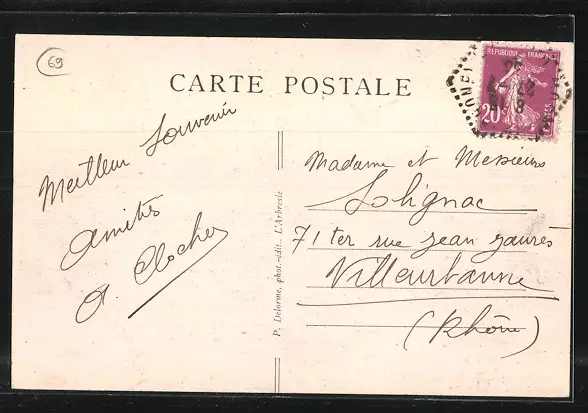 69
CARTE POSTALE
Meilleur Souvenir
Amitiés
A. Clocher
P. Delorme, phot.-édit., L'Arbresle
REPUBLIQUE FRANÇAISE
20c
Madame et Messieurs
Solignac
71 ter rue Jean Jaurès
Villeurbanne
(Rhône)